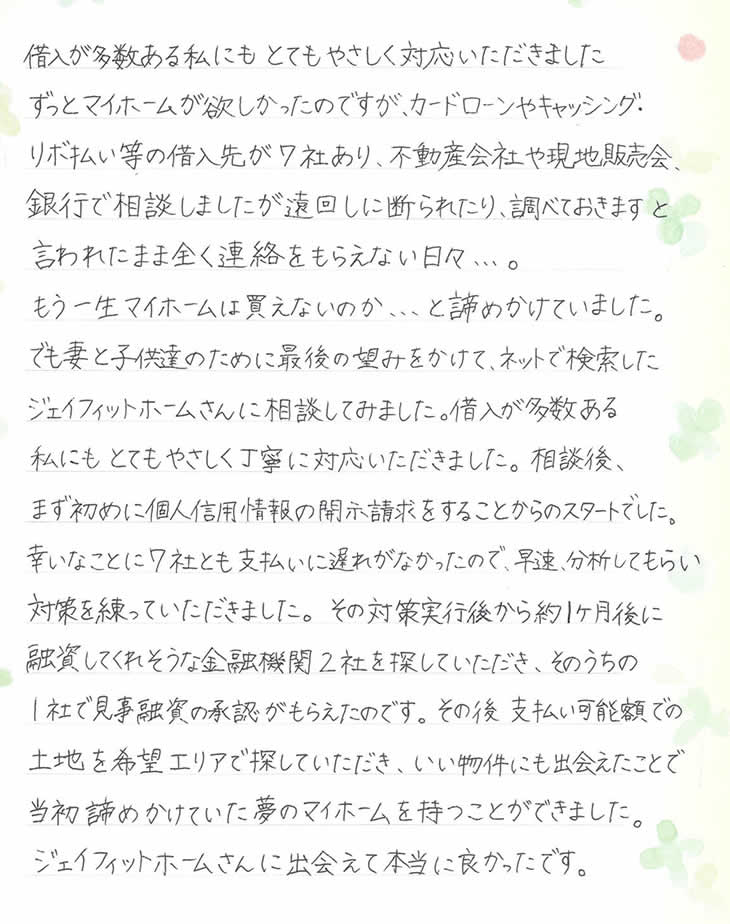 借入が多数ある私にも とてもやさしく対応いただきました
ずっとマイホームが欲しかったのですが、カードローンやキャッシング・
リボ払い等の借入先が7社あり、不動産会社や現地販売会、
銀行で相談しましたが遠回しに断られたり、調べておきますと
言われたまま全く連絡をもらえない日々、、、。
もう一生マイホームは買えないのか、、、と諦めかけていました。
でも妻と子供達のために最後の望みをかけて、ネットで検索した
ジェイフィットホームさんに相談してみました。借入が多数ある
私にも とてもやさしく丁寧に対応いただきました。相談後、
まず初めに個人信用情報の開示請求をすることからのスタートでした。
幸いなことに7社とも支払いに遅れがなかったので、早速、分析してもらい
対策を練っていただきました。その対策実行後から約1ヶ月後に
融資してくれそうな金融機関2社を探していただき、そのうちの
1社で見事融資の承認がもらえたのです。その後 支払い可能額での
土地を希望エリアで探していただき、いい物件にも出会えたことで
当初諦めかけていた夢のマイホームを持つことができました。
ジェイフィットホームさんに出会えて本当に良かったです。